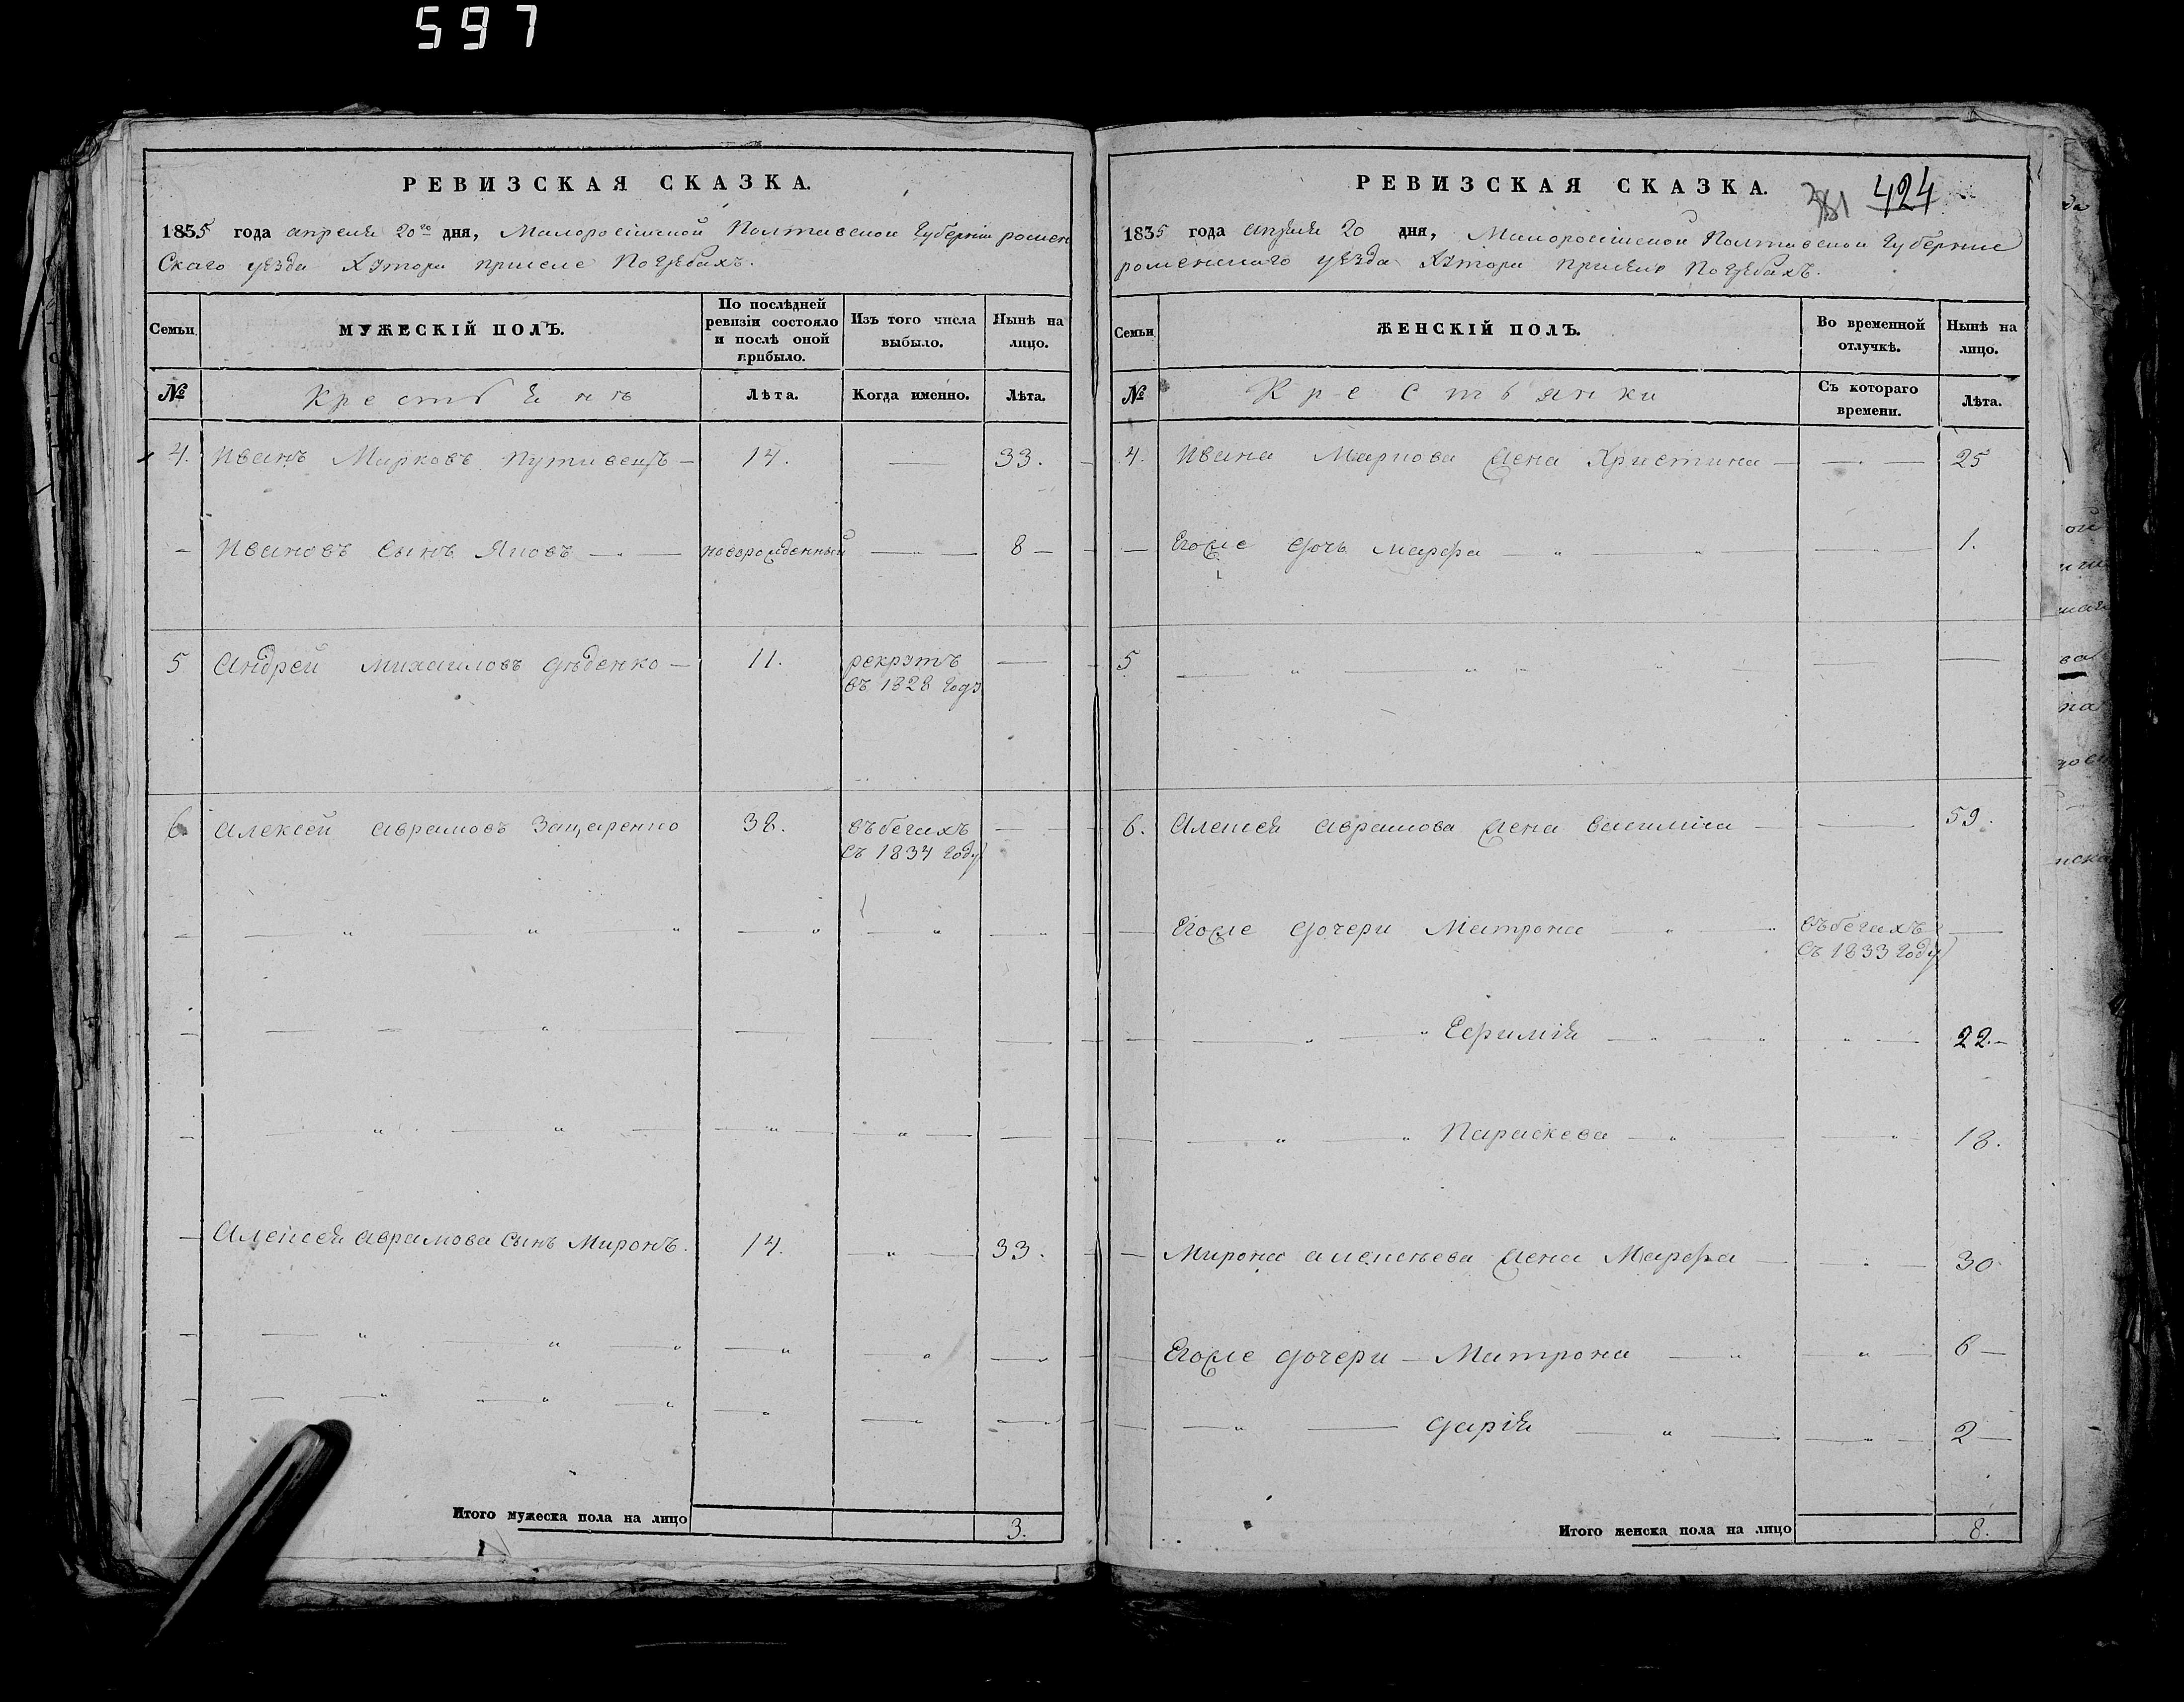 597
РЕВИЗСКАЯ СКАЗКА.
1835 года апреля 20го дня, Малоросійской Полтавской Губерніи ромен
скаго уезда Хутора приселе Погребахъ.
Семьи
МУЖЕСКІЙ ПОЛЪ.
По послѣдней ревизіи состояло и послѣ оной прибыло.
Изъ того числа выбыло.
Нынѣ на лицо.
№
Крестьянъ
Лѣта.
Когда именно.
Лѣта.
4. Иванъ Марковъ Путивецъ — 14. — 33.
— Ивановъ сынъ Яковъ — новорожденный — 8 —
5 Андрей Михайловъ Дѣденко — 11. рекрутъ —
въ 1828 году
6 Алексей Аврамовъ Захаренко 38. въбегахъ —
съ 1834 году
— Алексея Аврамова сынъ Миронъ. 14. „ — 33.
Итого мужеска пола на лицо 3.
РЕВИЗСКАЯ СКАЗКА.
381 424
1835 года апреля 20 дня, Малоросійской Полтавской Губерніи
роменскаго уезда Хутора приселе Погребахъ.
Семьи
ЖЕНСКІЙ ПОЛЪ.
Во временной отлучкѣ.
Нынѣ на лицо.
№
Крестьянки
Съ котораго времени.
Лѣта.
4. Ивана Маркова жена Христина — — 25
— Егоже дочь Марфа — „ — 1.
5 — „ — „ — —
6. Алексея Аврамова жена Василиса — — 59.
— Егоже дочери Матрона — „ въбегахъ —
съ 1833 году
— „ — „ Ефимія — „ — 22. —
— „ — „ Параскева — „ — 18.
— Мирона Алексеева жена Марфа — — 30
Егоже дочери — Матрона — „ — 6 —
— „ — Дарія — „ — 2 —
Итого женска пола на лицо 8.